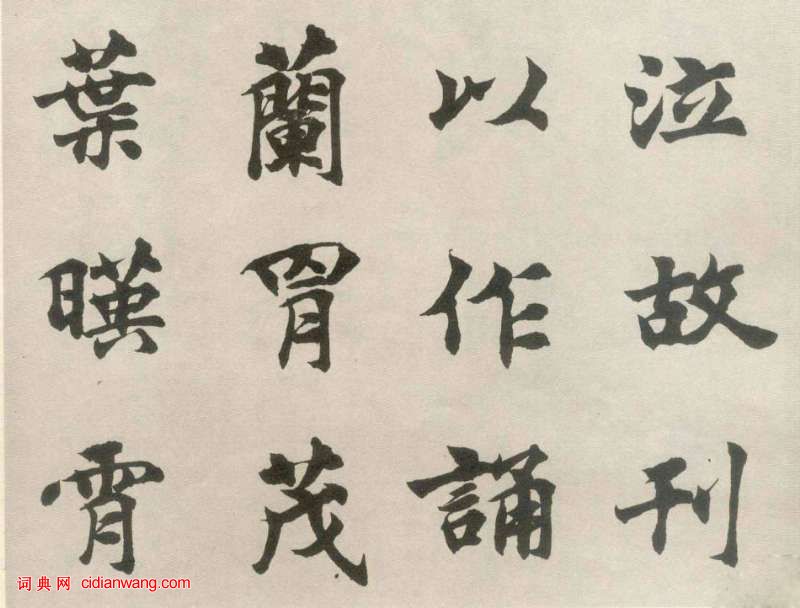 泣故刊
以作誦
蘭胄茂
葉暎霄
词典网 cidianwang.com